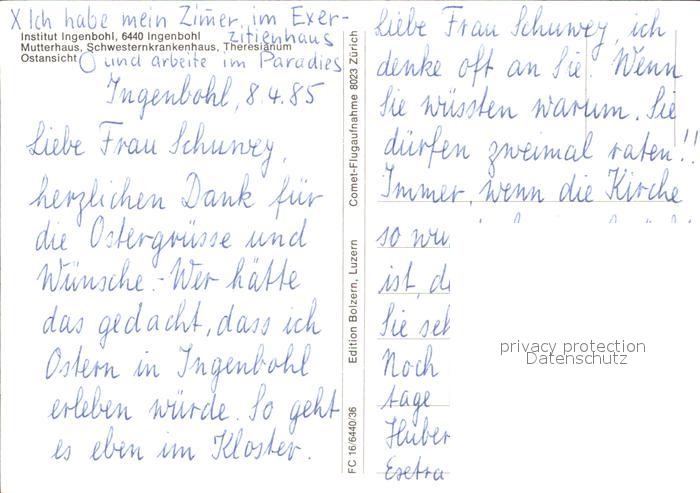 X Ich habe mein Zimmer im Exer-
zitienhaus
Institut Ingenbohl, 6440 Ingenbohl
Mutterhaus, Schwesternkrankenhaus, Theresianum
Ostansicht
O und arbeite im Paradies
Ingenbohl, 8.4.85
Liebe Frau Schuwey,
herzlichen Dank für
die Ostergrüsse und
Wünsche.- Wer hätte
das gedacht, dass ich
Ostern in Ingenbohl
erleben würde. So geht
es eben im Kloster.
FC 16/6440/36 Edition Bolzern, Luzern Comet-Flugaufnahme 8023 Zürich
Liebe Frau Schuwey, ich
denke oft an Sie. Wenn
Sie wüssten warum. Sie
dürfen zweimal raten!!
Immer, wenn die Kirche
so
ist,
Sie
Noch
tage
privacy protection
Datenschutz